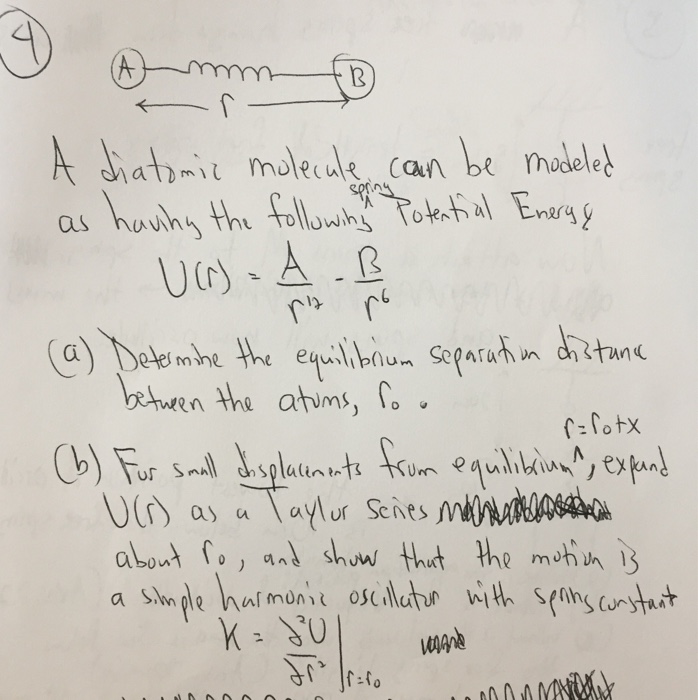 4
A B
r
A diatomic molecule can be modeled
as having the following spring Potential Energy
U(r) = A/r¹² - B/r⁶
(a) Determine the equilibrium separation distance
between the atoms, r₀.
(b) For small displacements from equilibrium r=r₀+x, expand
U(r) as a Taylor series
about r₀, and show that the motion is
a simple harmonic oscillator with spring constant
K = ∂²U/∂r² |r=r₀